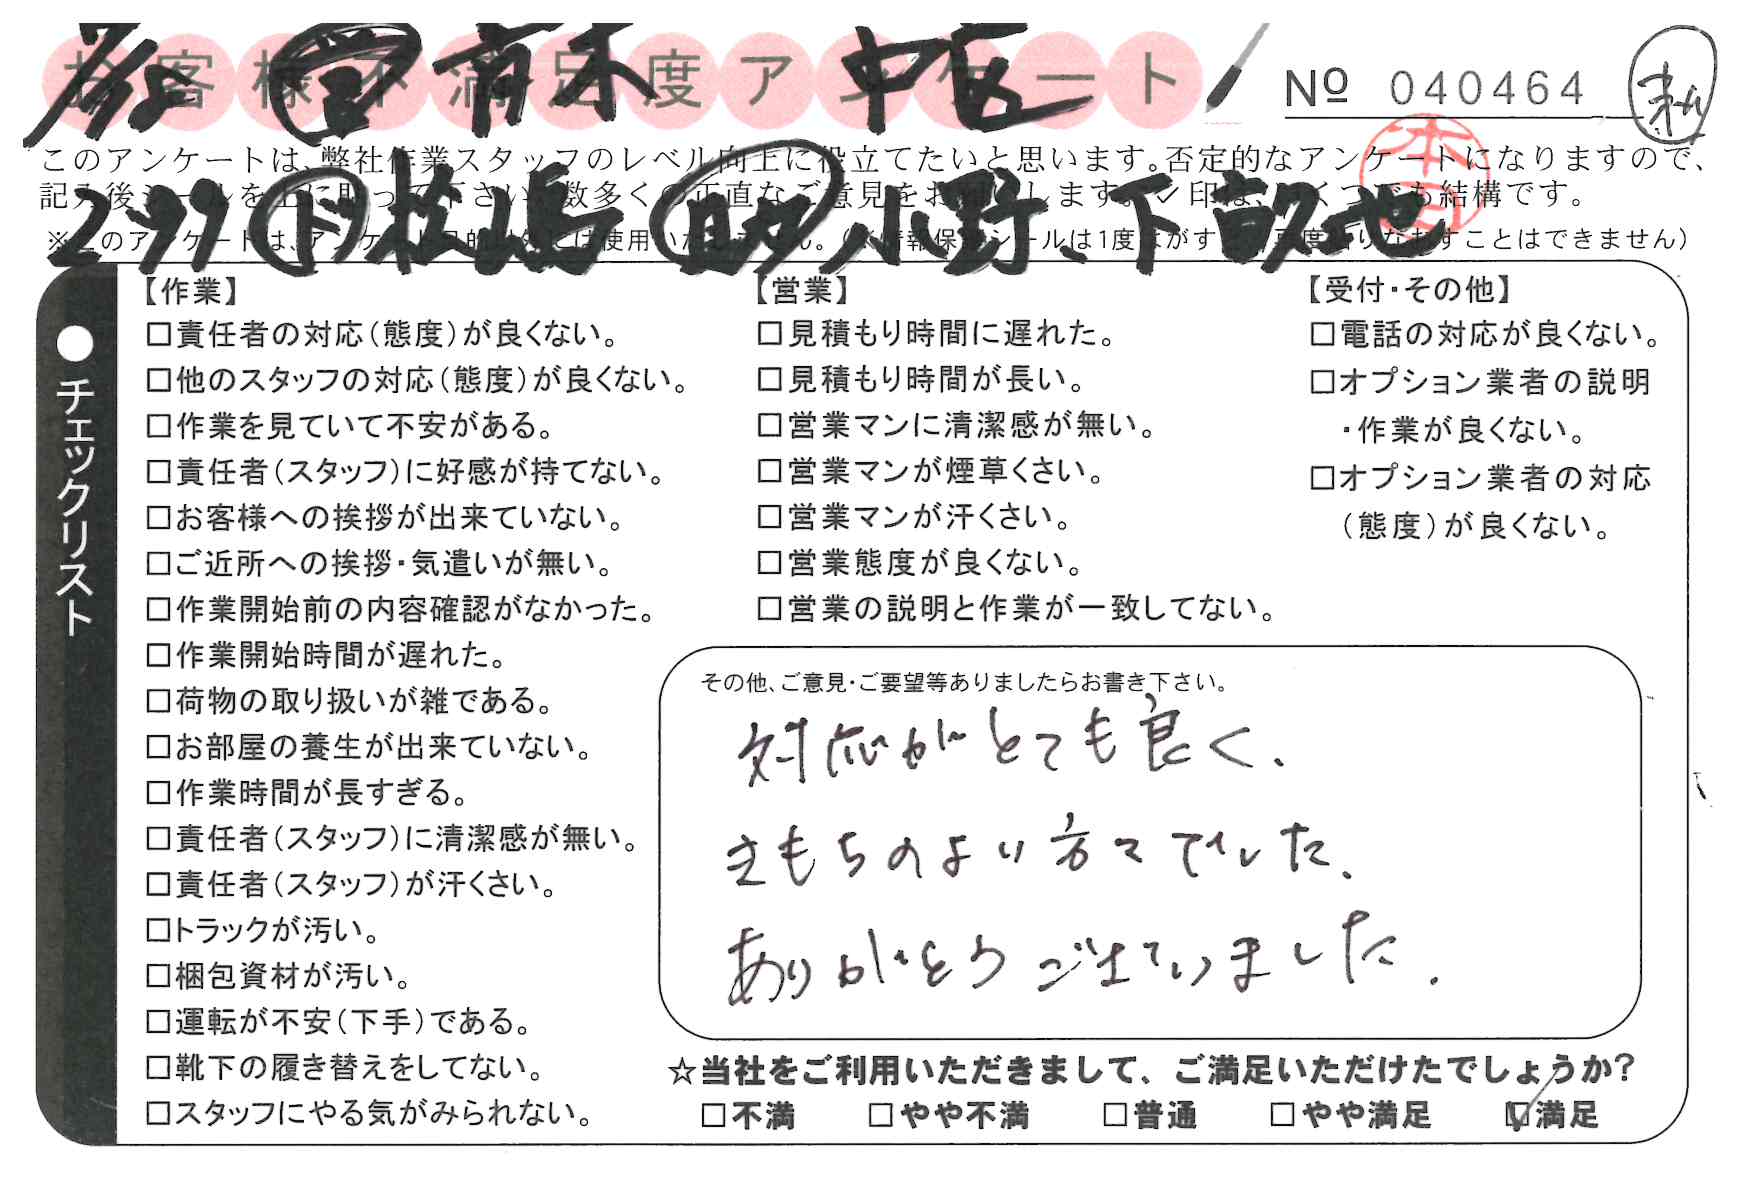 お客様不満足度アンケート
№ 040464
このアンケートは、弊社作業スタッフのレベル向上に役立てたいと思います。否定的なアンケートになりますので、
記入後シールを上に貼って下さい。数多くの正直なご意見をお願いします。✓印は、いくつでも結構です。
※このアンケートは、アンケート目的以外には使用いたしません。(※情報保護シールは1度はがすと、再度貼りなおすことはできません)
営 青木 中区
299 ト 松嶋 助 小野、下
本日
●チェックリスト
【作業】
□責任者の対応(態度)が良くない。
□他のスタッフの対応(態度)が良くない。
□作業を見ていて不安がある。
□責任者(スタッフ)に好感が持てない。
□お客様への挨拶が出来ていない。
□ご近所への挨拶・気遣いが無い。
□作業開始前の内容確認がなかった。
□作業開始時間が遅れた。
□荷物の取り扱いが雑である。
□お部屋の養生が出来ていない。
□作業時間が長すぎる。
□責任者(スタッフ)に清潔感が無い。
□責任者(スタッフ)が汗くさい。
□トラックが汚い。
□梱包資材が汚い。
□運転が不安(下手)である。
□靴下の履き替えをしてない。
□スタッフにやる気がみられない。
【営業】
□見積もり時間に遅れた。
□見積もり時間が長い。
□営業マンに清潔感が無い。
□営業マンが煙草くさい。
□営業マンが汗くさい。
□営業態度が良くない。
□営業の説明と作業が一致してない。
【受付・その他】
□電話の対応が良くない。
□オプション業者の説明
・作業が良くない。
□オプション業者の対応
(態度)が良くない。
その他、ご意見・ご要望等ありましたらお書き下さい。
対応がとても良く、
きもちのよい方々でした。
ありがとうございました。
☆当社をご利用いただきまして、ご満足いただけたでしょうか?
□不満 □やや不満 □普通 □やや満足 ☑満足